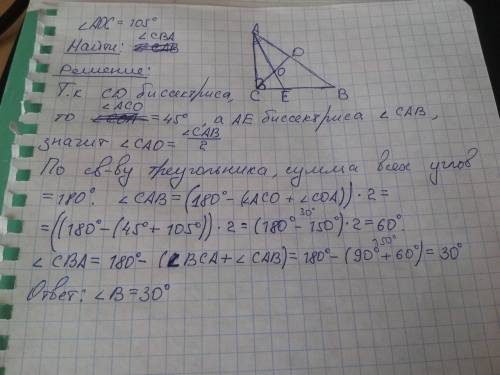 ∠AOC = 105°
∠CBA
Найти: ∠CAB
Решение:
Т.к CD биссектриса,
∠ACO
то ∠COA = 45°, а AE биссектриса ∠CAB,
значит ∠CAO = ∠CAB/2
По св-ву треугольника, сумма всех углов
= 180°. ∠CAB = (180° - (∠ACO + ∠COA)) · 2 =
= ((180° - (45° + 105°)) · 2 = (180° - 150°) · 2 = 60°.
30°
∠CBA = 180° - (∠BCA + ∠CAB) = 180° - (90° + 60°) = 30°
150°
Ответ: ∠B = 30°
A
D
O
C E B